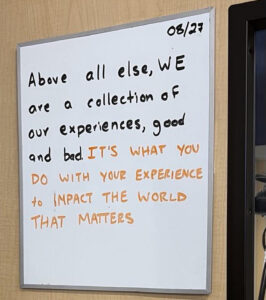 08/27
Above all else, WE
are a collection of
our experiences, good
and bad. IT'S WHAT YOU
DO WITH YOUR EXPERIENCE
to IMPACT THE WORLD
THAT MATTERS